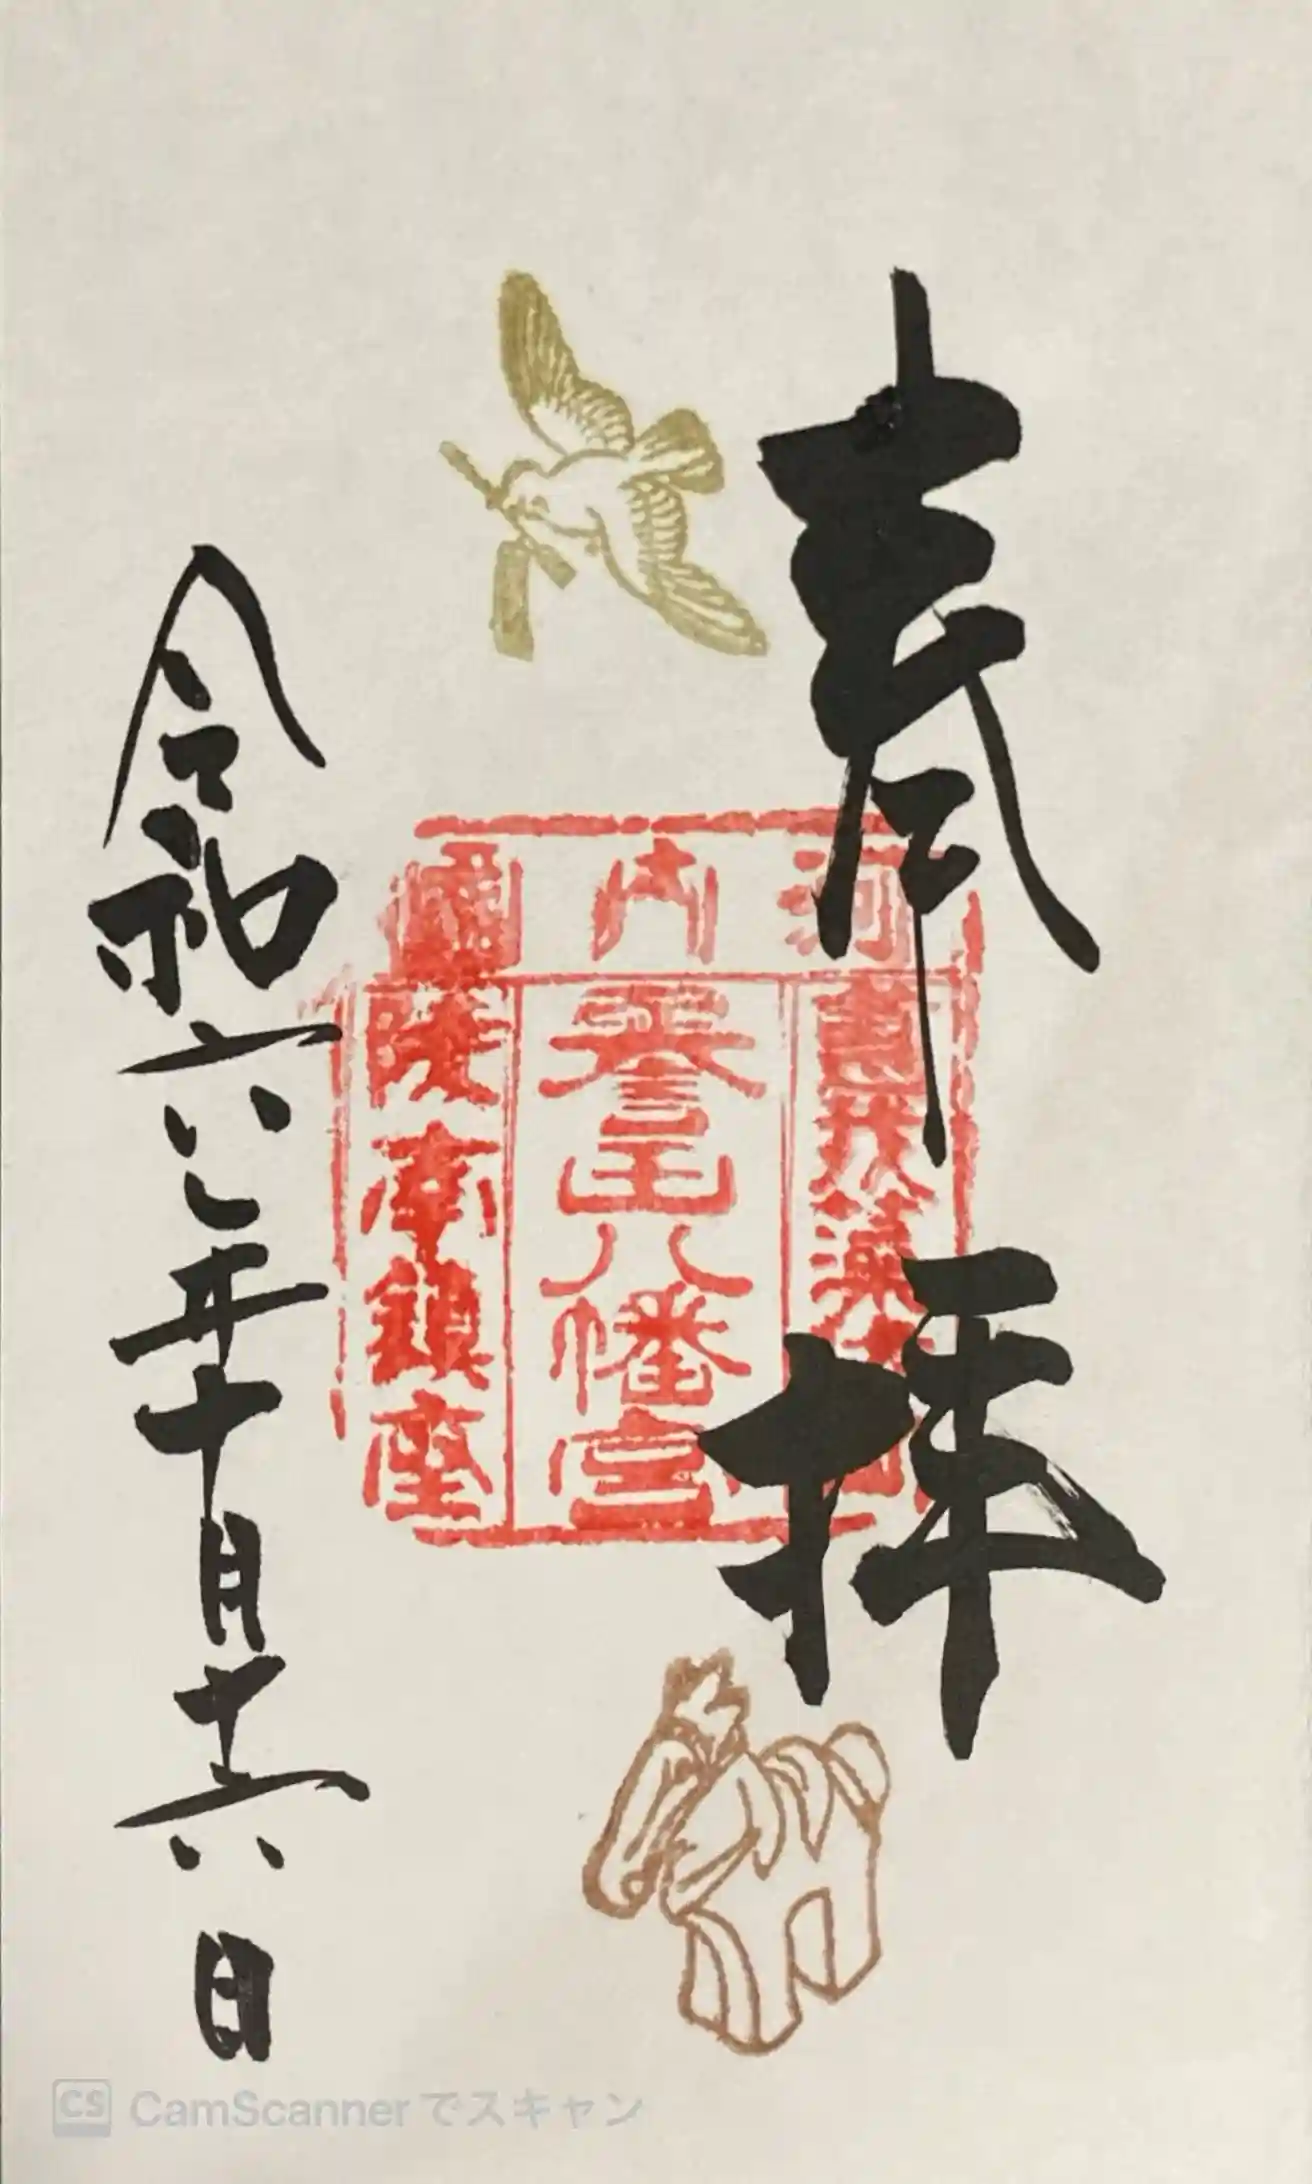 奉拝
河内國
誉田八幡宮
陵南鎮座
令和六年十月十六日
CS CamScanner でスキャン